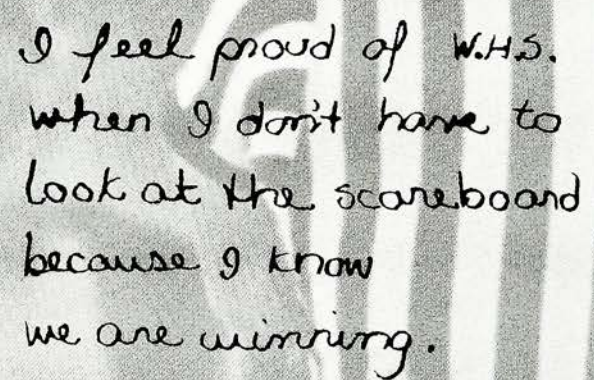 I feel proud of W.H.S.
when I don't have to
look at the scoreboard
because I know
we are winning.